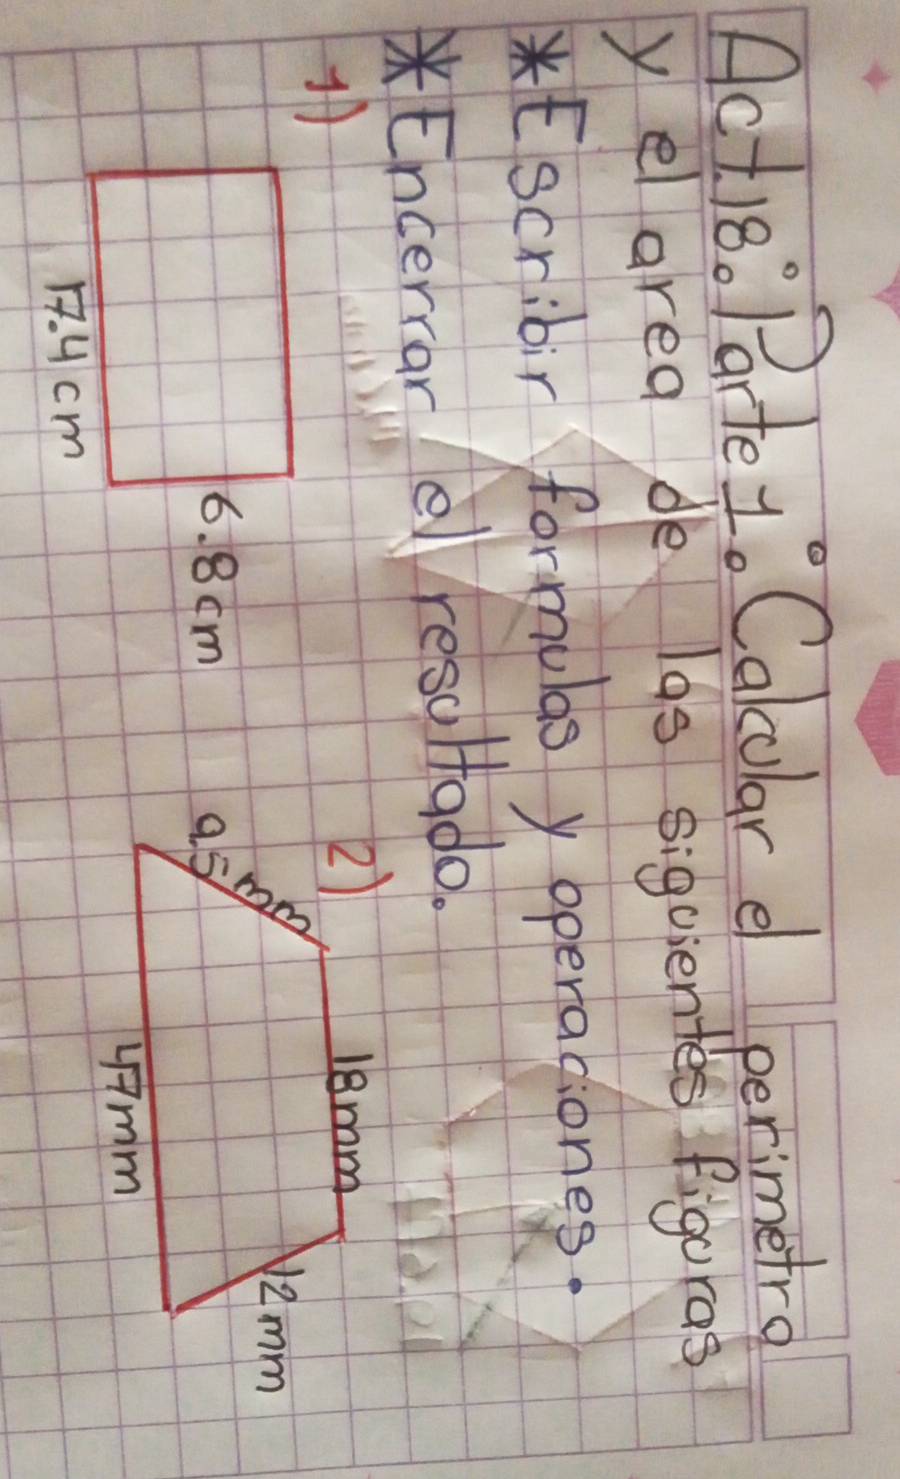 Act.18: Parte 1: Calcular el perimetro
y el area de las siguientes figuras
*Escribir formulas y operaciones.
*Encerrar el resultado.
1)
6.8cm
17.4cm
2)
18mm
9.5mm
12mm
47mm